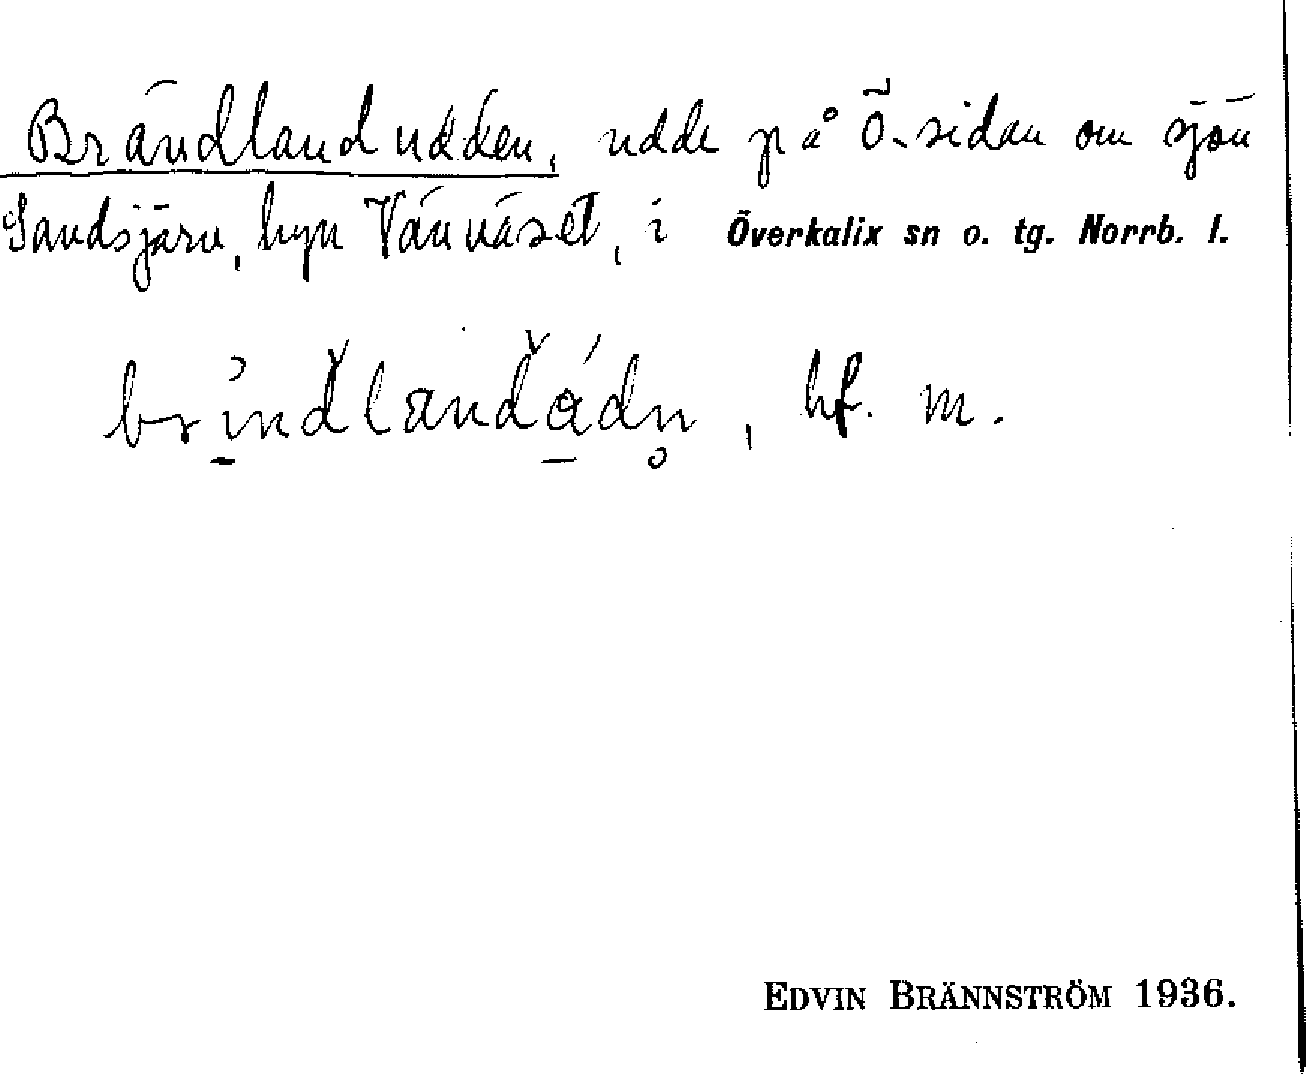 Brändlandudden, udde på Ö.sidan om sjön
Sandsjärv, byn Vännäset, i Överkalix sn o. tg. Norrb. l.
bf. m.
EDVIN BRÄNNSTRÖM 1936.